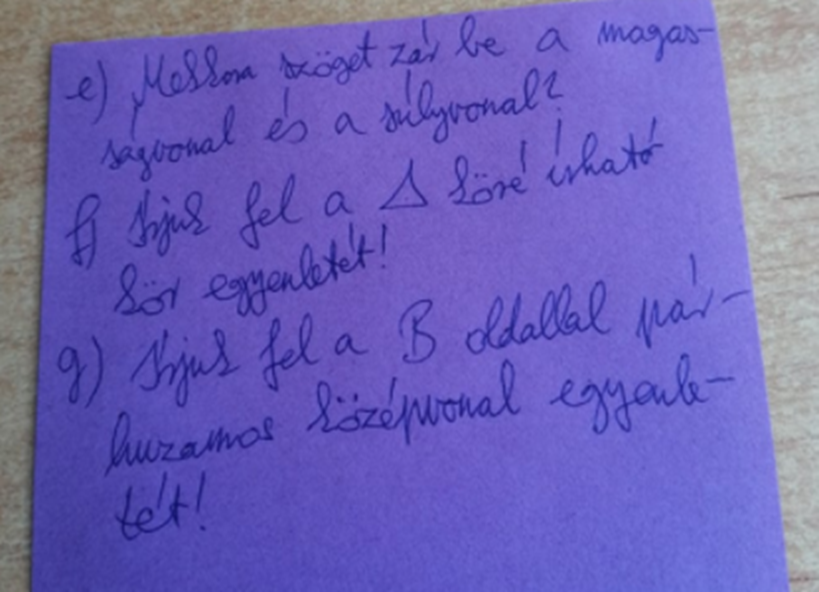 e) Mekkora szöget zár be a magas-
ságvonal és a súlyvonal?
f) Írjuk fel a Δ köré írható
kör egyenletét!
g) Írjuk fel a B oldallal pár-
huzamos középvonal egyenle-
tét!